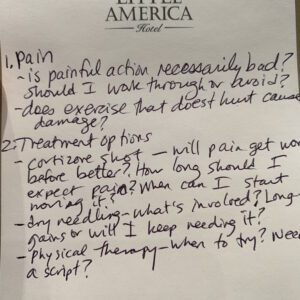 LITTLE
AMERICA
Hotel
1. Pain
- is painful action necessarily bad?
should I work through or avoid?
- does exercise that doest hunt cause
damage?
2. Treatment options
- cortizone shot - will pain get wor
before better? How long should I
expect pain? When can I start
moving it?
- dry needling - what's involved? Long-
gains or will I keep needing it?
- Physical therapy - when to try? Nee
a script?